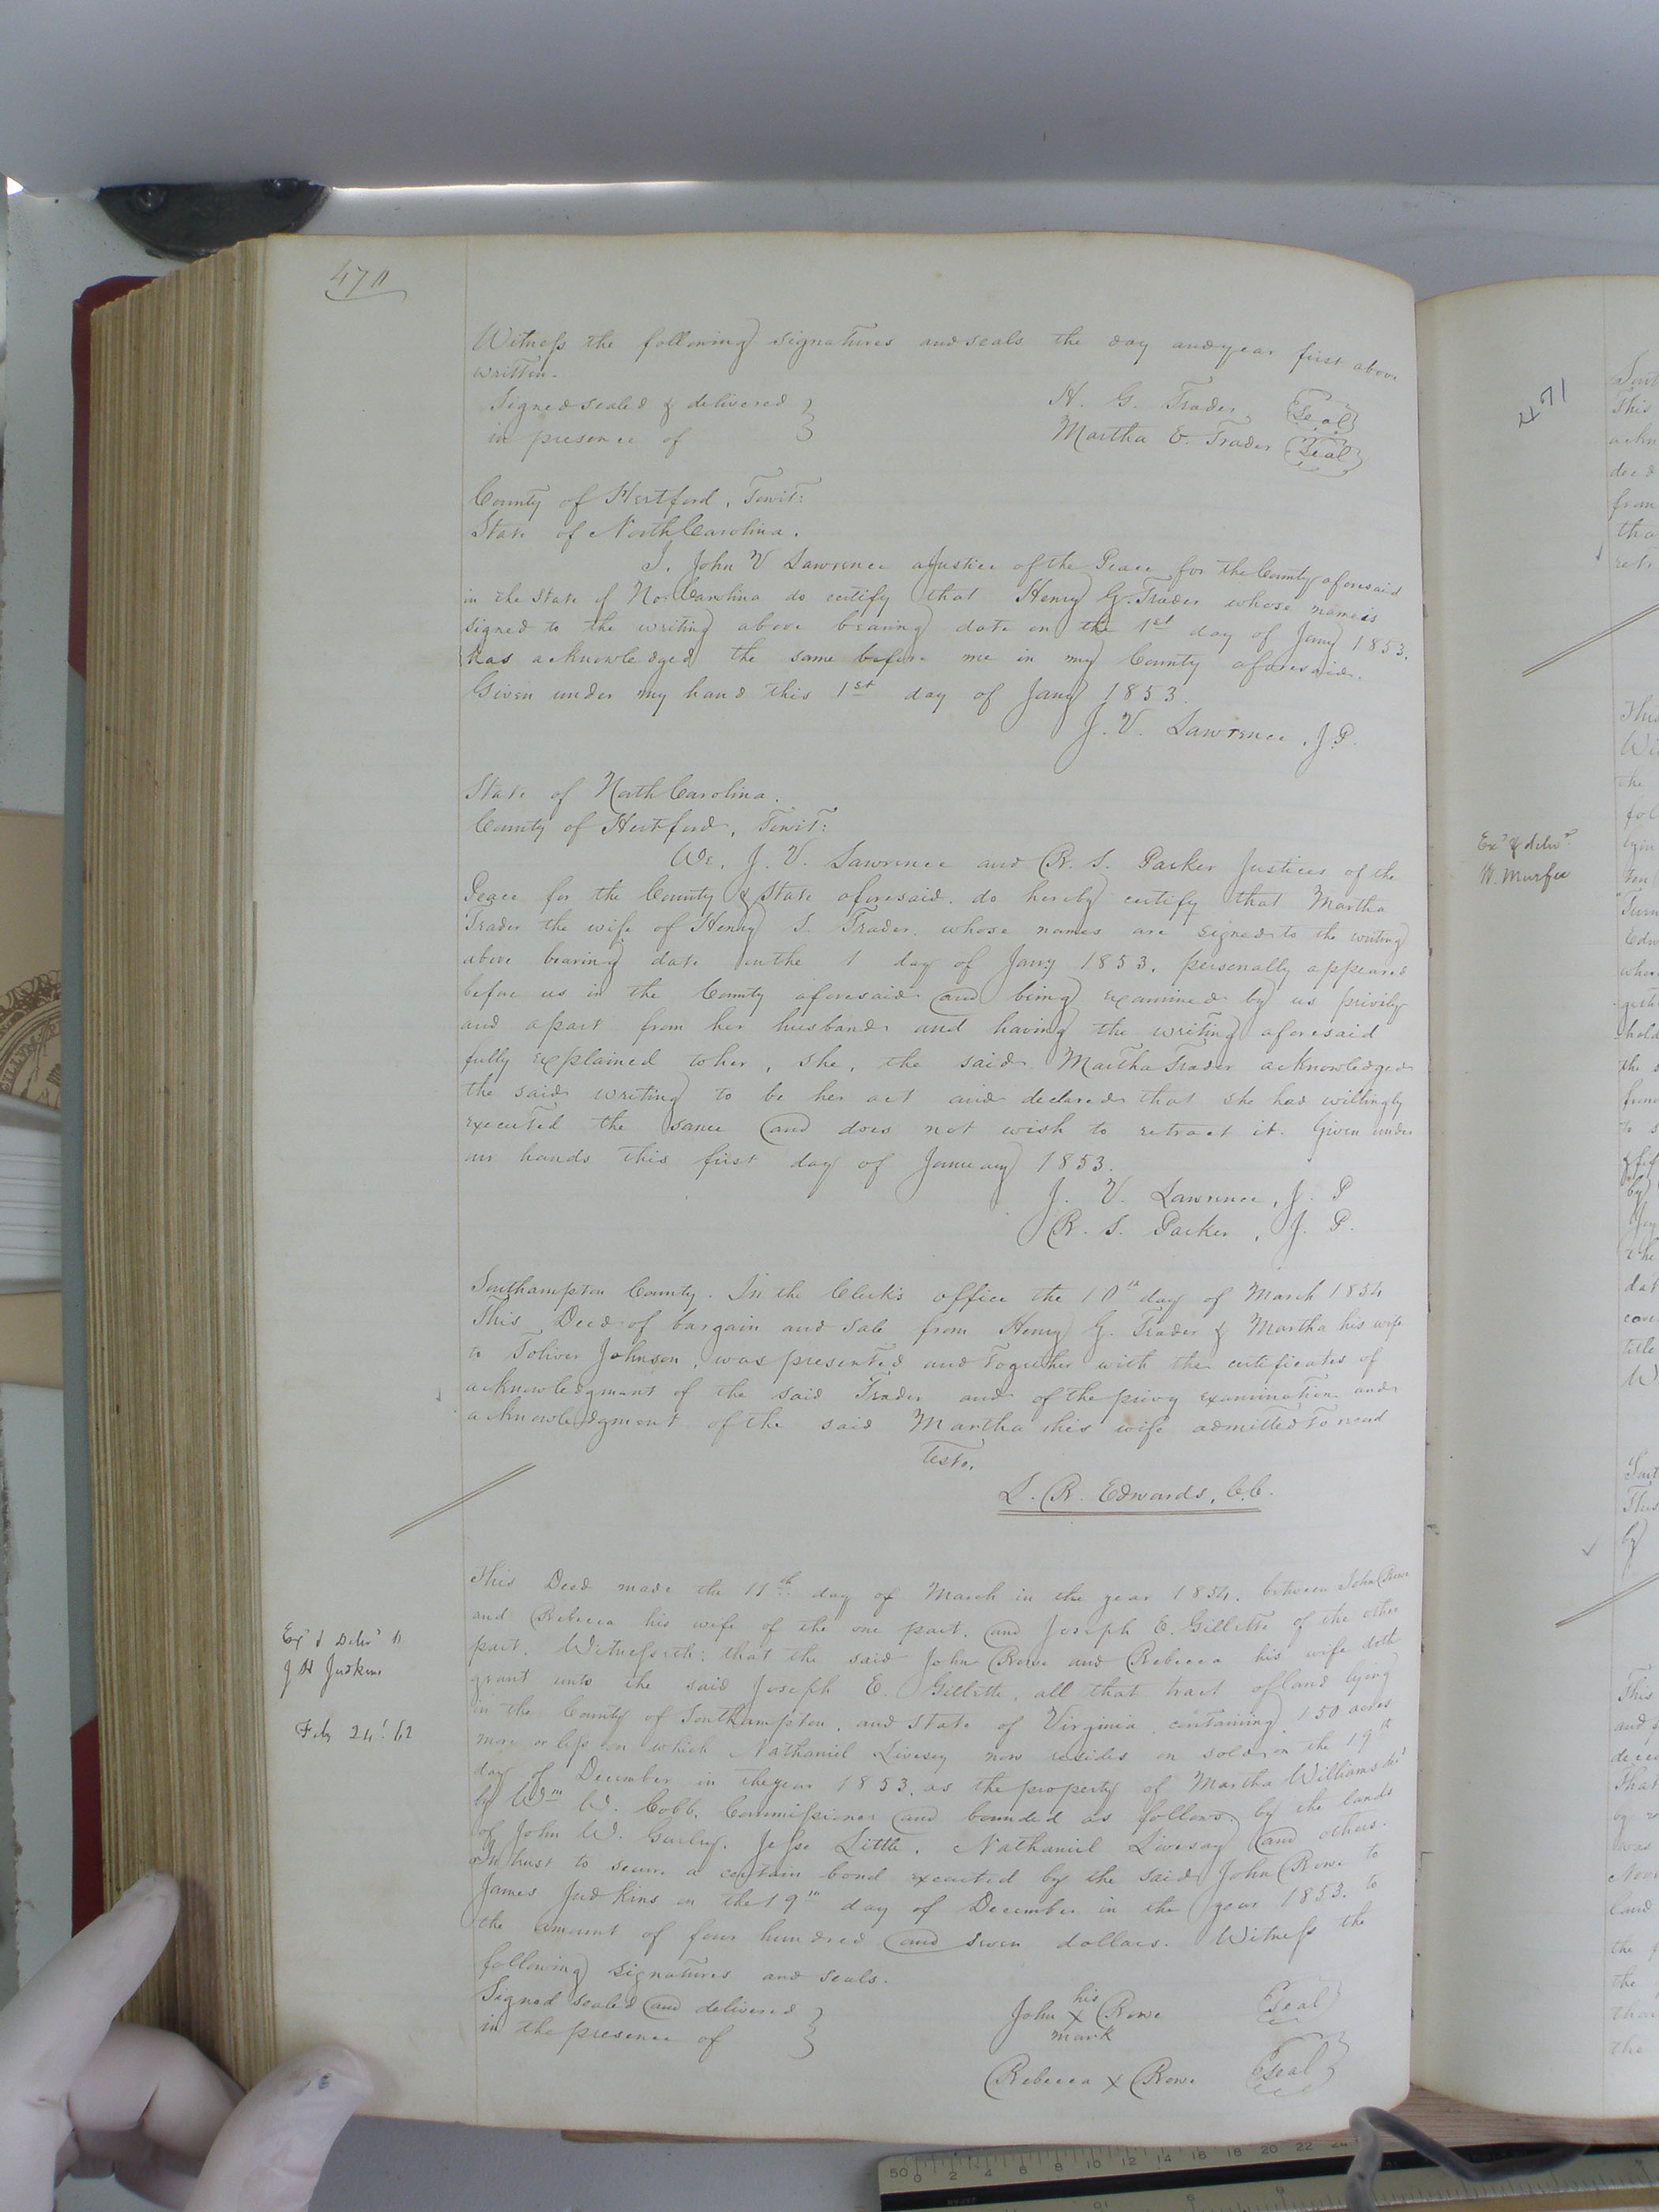 470
Witness the following signatures and seals the day and year first above
written.
Signed sealed & delivered
in presence of
H. G. Trader Seal
Martha E. Trader Seal
County of Hertford, Towit:
State of North Carolina.
I, John V Lawrence a Justice of the Peace for the County aforesaid
in the State of No. Carolina do certify that Henry G. Trader whose name is
signed to the writing above bearing date on the 1st day of Jany 1853.
has acknowledged the same before me in my County aforesaid.
Given under my hand this 1st day of Jany 1853.
J. V. Lawrence, J.P.
State of North Carolina.
County of Hertford, Towit:
We, J. V. Lawrence and R. S. Parker Justices of the
Peace for the County & State aforesaid. do hereby certify that Martha
Trader the wife of Henry S. Trader. whose names are signed to the writing
above bearing date on the 1 day of Jany 1853. personally appeared
before us in the County aforesaid and being examined by us privily
and apart from her husband and having the writing aforesaid
fully explained to her, she, the said Martha Trader acknowledged
the said writing to be her act and declared that she had willingly
executed the same and does not wish to retract it. Given under
our hands this first day of January 1853.
J. V. Lawrence, J. P
R. S. Parker, J. P.
Southampton County. In the Clerk's office the 10th day of March 1854
This Deed of bargain and sale from Henry G. Trader & Martha his wife
to Toliver Johnson, was presented and together with the certificates of
acknowledgment of the said Trader and of the privy examination and
acknowledgment of the said Martha his wife admitted to record
Teste.
L. R. Edwards, C.C.
This Deed made the 11th day of March in the year 1854. between John Rowe
and Rebecca his wife of the one part. and Joseph E. Gillette of the other
part. Witnesseth: that the said John Rowe and Rebecca his wife doth
grant unto the said Joseph E. Gillette, all that tract of land lying
in the County of Southampton, and State of Virginia containing 150 acres
more or less on which Nathaniel Livesey now resides on sold on the 19th
day of December in the year 1853. as the property of Martha Williams
by Wm W. Cobb. Commissioner and bounded as follows. by the lands
of John W. Gurley. Jesse Little, Nathaniel Livesay and others.
In trust to secure a certain bond executed by the said John Rowe to
James Judkins on the 19th day of December in the year 1853. to
the amount of four hundred and seven dollars. Witness the
following signatures and seals.
Signed sealed and delivered
in the presence of
his
John X Rowe Seal
mark
Rebecca X Rowe Seal
J H Judkins
Feby 24' 62
471
W. Murfee
50 0 2 4 6 8 10 12 14 16 18 20 22